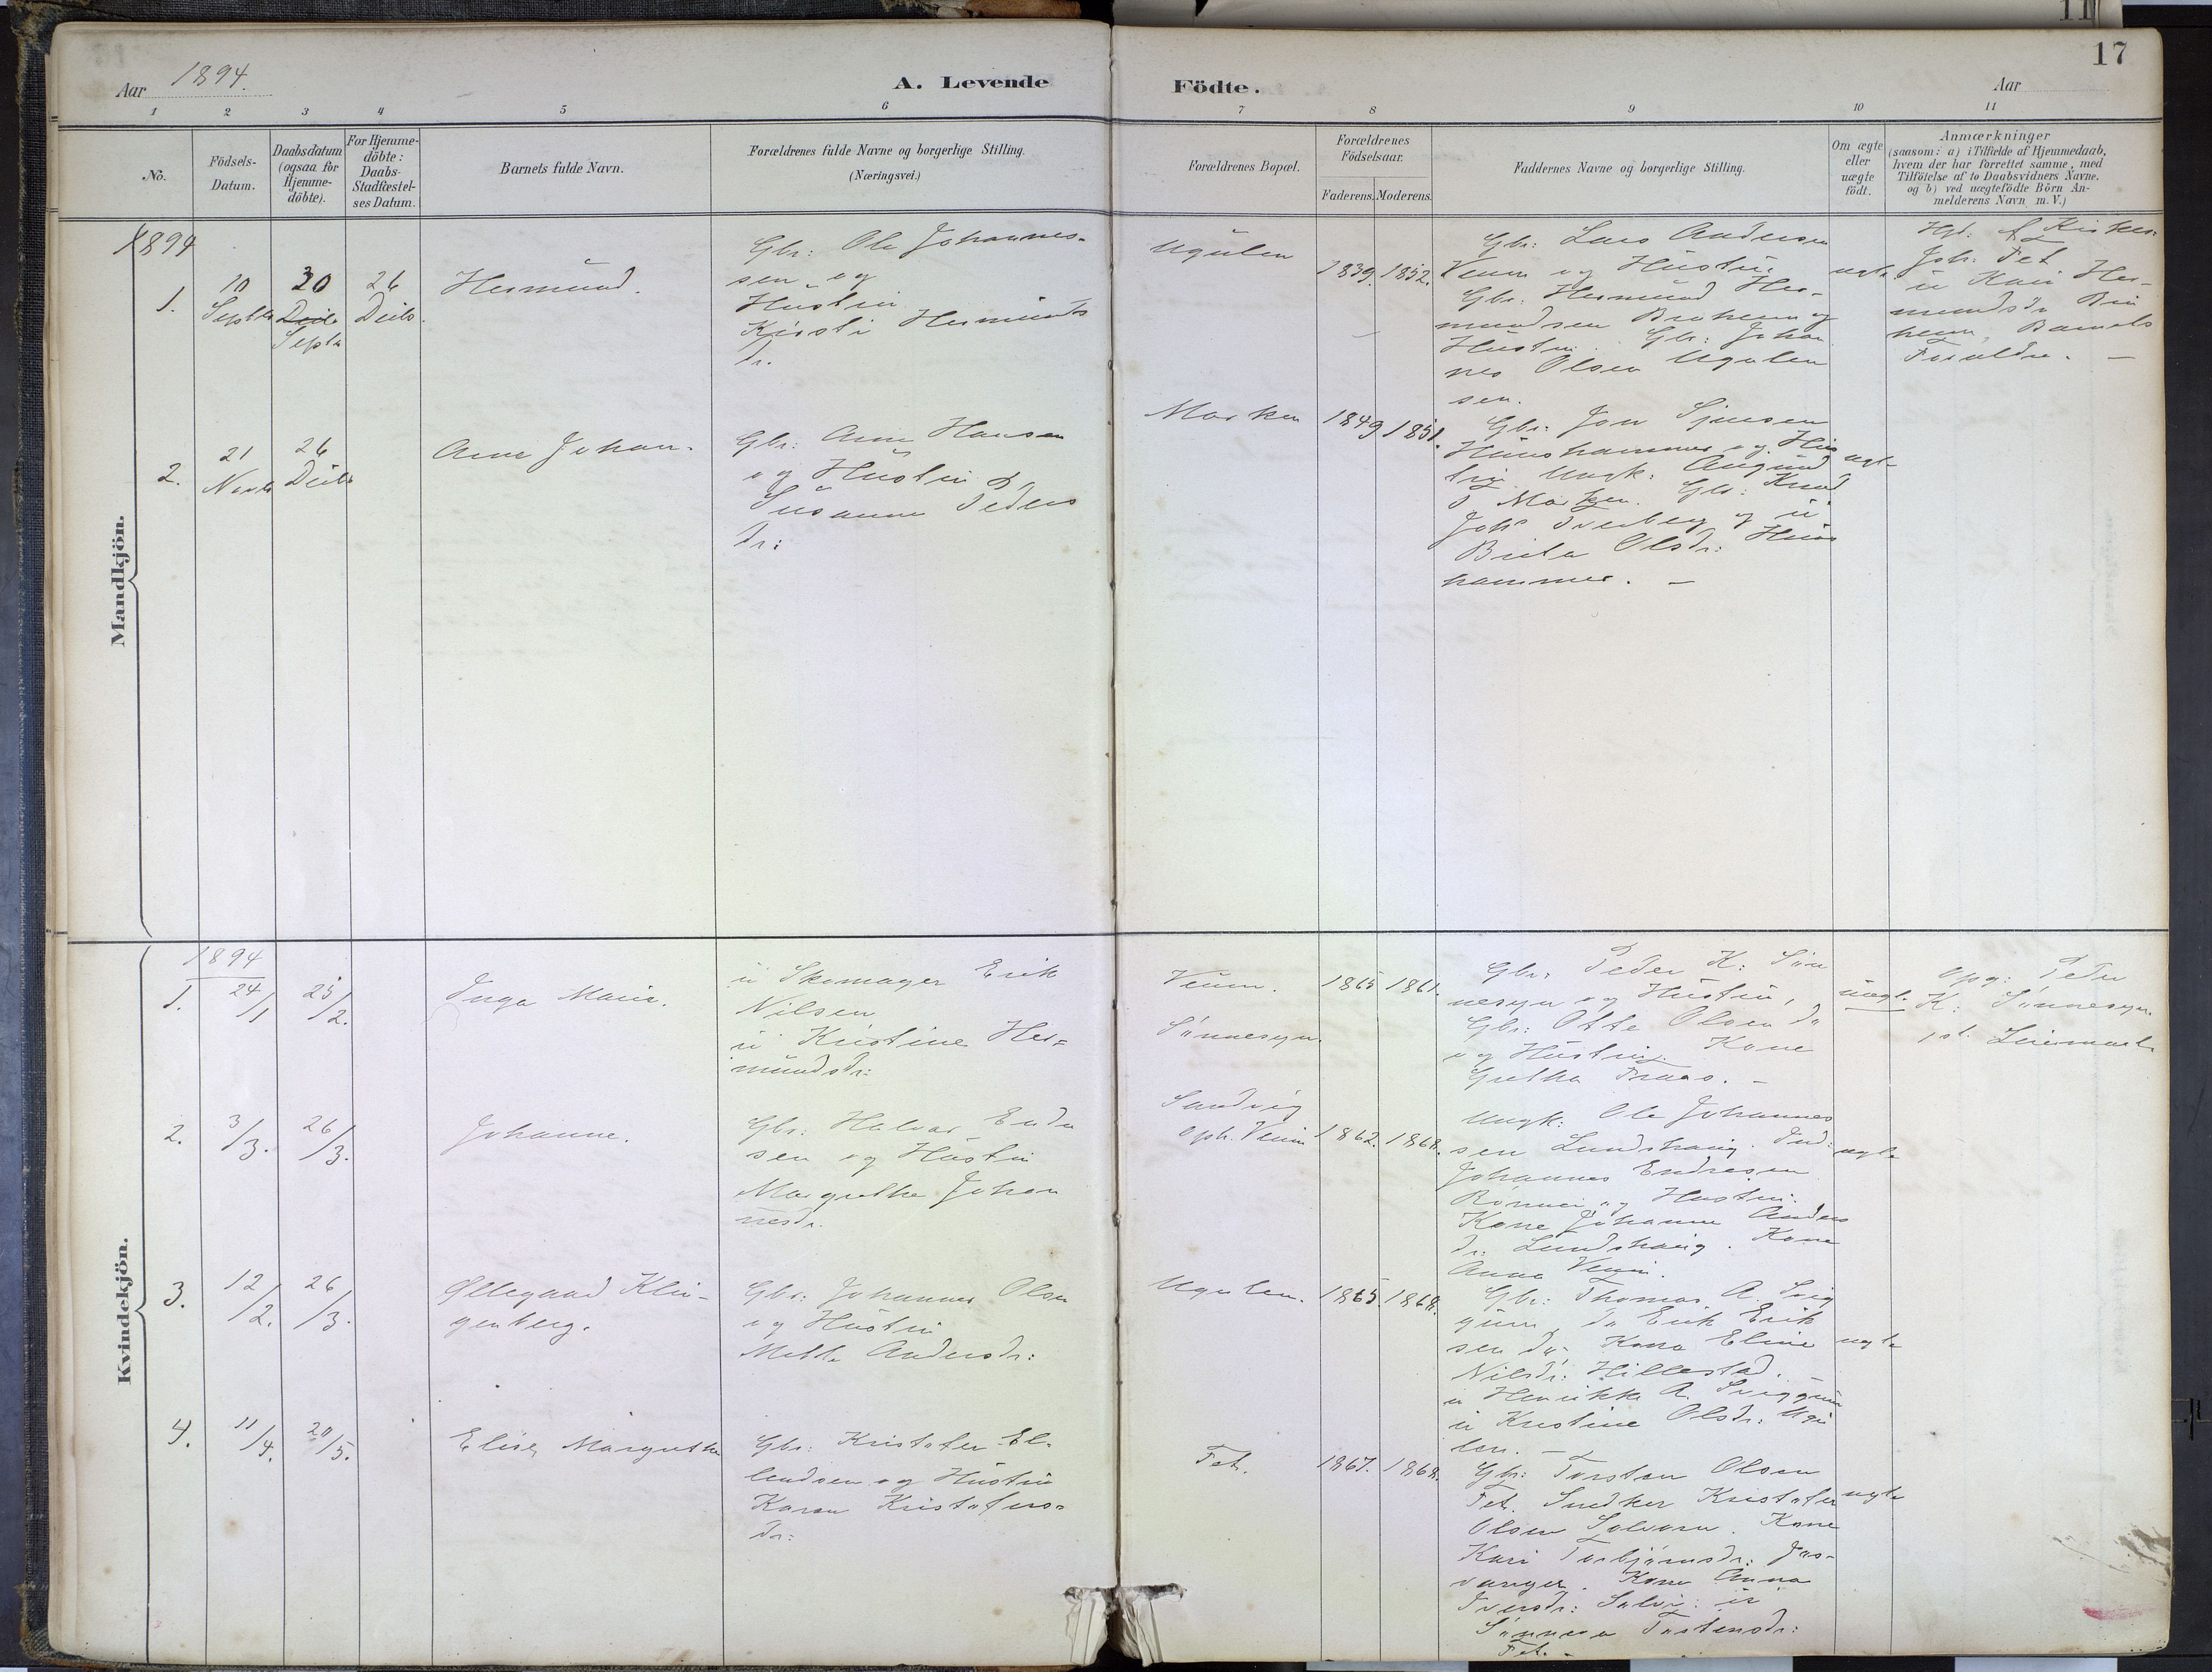 17
Aar 1894.
A. Levende Födte.
Aar
1 2 3 4 5 6 7 8 9 10 11
No.
Födsels-
Datum.
Daabsdatum
(ogsaa for
Hjemme-
döbte).
For Hjemme-
döbte:
Daabs-
Stadfæstel-
ses Datum.
Barnets fulde Navn.
Forældrenes fulde Navne og borgerlige Stilling.
(Næringsvei.)
Forældrenes Bopæl.
Forældrenes
Födselsaar.
Faderens. Moderens.
Faddernes Navne og borgerlige Stilling.
Om ægte
eller
uægte
födt.
Anmærkninger
(saasom: a) i Tilfælde af Hjemmedaab,
hvem der har forrettet samme, med
Tilföielse af to Daabsvidners Navne,
og b) ved uægtefödte Börn An-
melderens Navn m. V.)
Mandkjön.
1894
1.
10
Septbr
30
Decbr
Septbr
26
Decbr.
Hermund.
Gbr: Ole Johannes-
sen og
Hustru
Kirsti Hermunds
dr.
Ugulen
1839. 1852.
Gbr: Lars Andersen
Venum og Hustru.
Gbr: Hermund Her-
mundsen Broheim og
Hustru. Gbr: Johan
nes Olsen Ugulen
sen.
ægte
Hjd. af Kirkes:
Joh: Fet
u Kari Her-
mundsdr
Barnets
Forældre. —
2.
21
Novbr
26
Decbr
Arne Johan.
Gbr: Arne Hansen
og Hustru
Susanne Peders
dr:
Marken
1849 1851.
Gbr: Jon Sjursen
Hunshammer og Hus
tru. Ungk: Augund
J Marken. Gbr: Knud
Johs Tveberg og u
Brita Olsdr: Huns
hammer. —
ægte
Kvindekjön.
1894
1.
24/1
25/2.
Inga Marie.
u Skomager Erik
Nilsen
u Kristine Her=
mundsdr:
Venum.
Sönnesyn.
1865 1861.
Gbr: Peder K: Sön
nesyn og Hustru,
Gbr: Otte Olsen do
og Hustru. Kone
Grethe Traas. —
uægte
Opg: Peder
K: Sönnesyn.
1st Leiermaal.
2.
3/3.
26/3.
Johanne.
Gbr: Halvar Endre
sen og Hustru
Margrethe Johan
nesdr.
Sandvig
Oph. Venum
1862. 1868.
Ungk: Ole Johannes
sen Lundshaug. Ind:
Johannes Endresen
Rönnei og Hustru.
Kone Johanne Anders
dr: Lundshaug. Kone
Anna Venum.
ægte
3.
12/2.
26/3.
Øllegaard Klin-
genberg.
Gbr: Johannes Olsen
og Hustru
Mette Andersdr:
Ugulen.
1865. 1868.
Gbr: Thomas A. Svig
gum, do Erik Erik
sen do, Kone Eline
Nilsdr: Hillestad. —
u Henrikke A. Sviggum
u Kristine Olsdr: Ugu
len. —
ægte
4.
11/4.
20/5.
Elise Margrethe
Gbr: Kristofer El-
lendsen og Hustru
Karen Kristofers-
dr:
Fet.
1867. 1868.
Gbr: Torsten Olsen
Fet. Snedker Kristofer
Olsen Solvorn. Kone
Kari Torbjörnsdr: Jos-
vanger. Kone Anna
Iversdr: Solv: u
Sönneva Torstensdr:
Fet. —
ægte